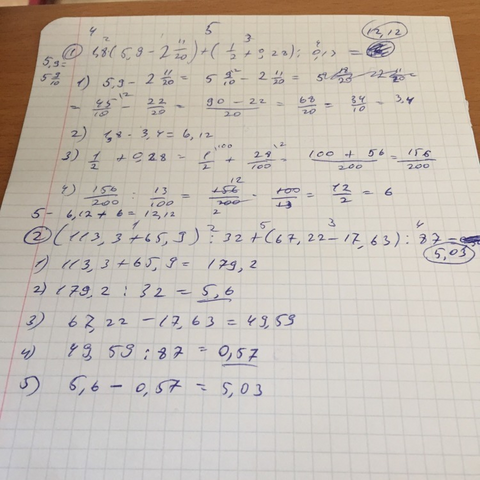 4 2 5 1 3 4 12,12
① 1,8(5,9 - 2 11/20) + (1/2 + 0,28) : 0,13 =
5,9 =
5 9/10
1) 5,9 - 2 11/20 = 5 9/10 - 2 11/20 =
= 45/10 - 22/20 = 90 - 22/20 = 68/20 = 34/10 = 3,4
2) 1,8 · 3,4 = 6,12
3) 1/2 + 0,28 = 1/2 + 28/100 = 100 + 56/200 = 156/200
4) 156/200 : 13/100 = 156/200 · 100/13 = 12/2 = 6
5 - 6,12 + 6 = 12,12
1 2 5 3 4
② (113,3 + 65,9) : 32 + (67,22 - 17,63) : 87 =
5,03
1) 113,3 + 65,9 = 179,2
2) 179,2 : 32 = 5,6
3) 67,22 - 17,63 = 49,59
4) 49,59 : 87 = 0,57
5) 5,6 - 0,57 = 5,03